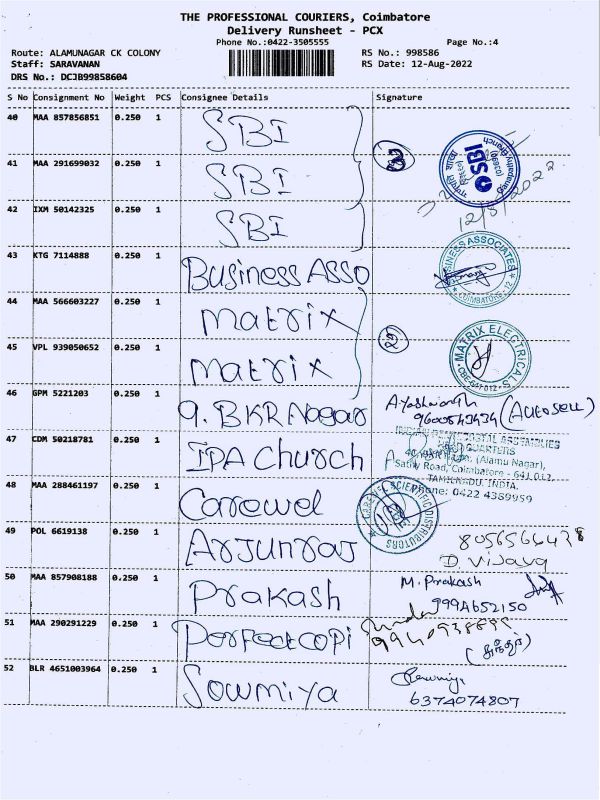 THE PROFESSIONAL COURIERS, Coimbatore
Delivery Runsheet - PCX
Phone No.:0422-3505555 Page No.:4
Route: ALAMUNAGAR CK COLONY RS No.: 998586
Staff: SARAVANAN RS Date: 12-Aug-2022
DRS No.: DCJB99858604
S No Consignment No Weight PCS Consignee Details Signature
40 MAA 857856851 0.250 1 SBI
41 MAA 291699032 0.250 1 SBI 3 SBI
42 IXM 50142325 0.250 1 SBI 12/8/2022
43 KTG 7114888 0.250 1 Business Asso BUSINESS ASSOCIATES COIMBATORE - 12
44 MAA 566603227 0.250 1 matrix
45 VPL 939050652 0.250 1 matrix 2 MATRIX ELECTRICALS
46 GPM 5221203 0.250 1 9. BKR Nagar 9600543434 (AUTO SELL)
47 CDM 50218781 0.250 1 IPA Church
(Alamu Nagar),
Sathy Road, Coimbatore - 641 012.
TAMILNADU, INDIA.
Phone: 0422 4389959
48 MAA 288461197 0.250 1 Carewel DISTRIBUTORS
49 POL 6619138 0.250 1 Arjunraj
D Vijaya
50 MAA 857908188 0.250 1 Prakash M. Prakash
9994652150
51 MAA 290291229 0.250 1 Perfect copi
52 BLR 4651003964 0.250 1 Sowmiya Sowmiya
6374074807